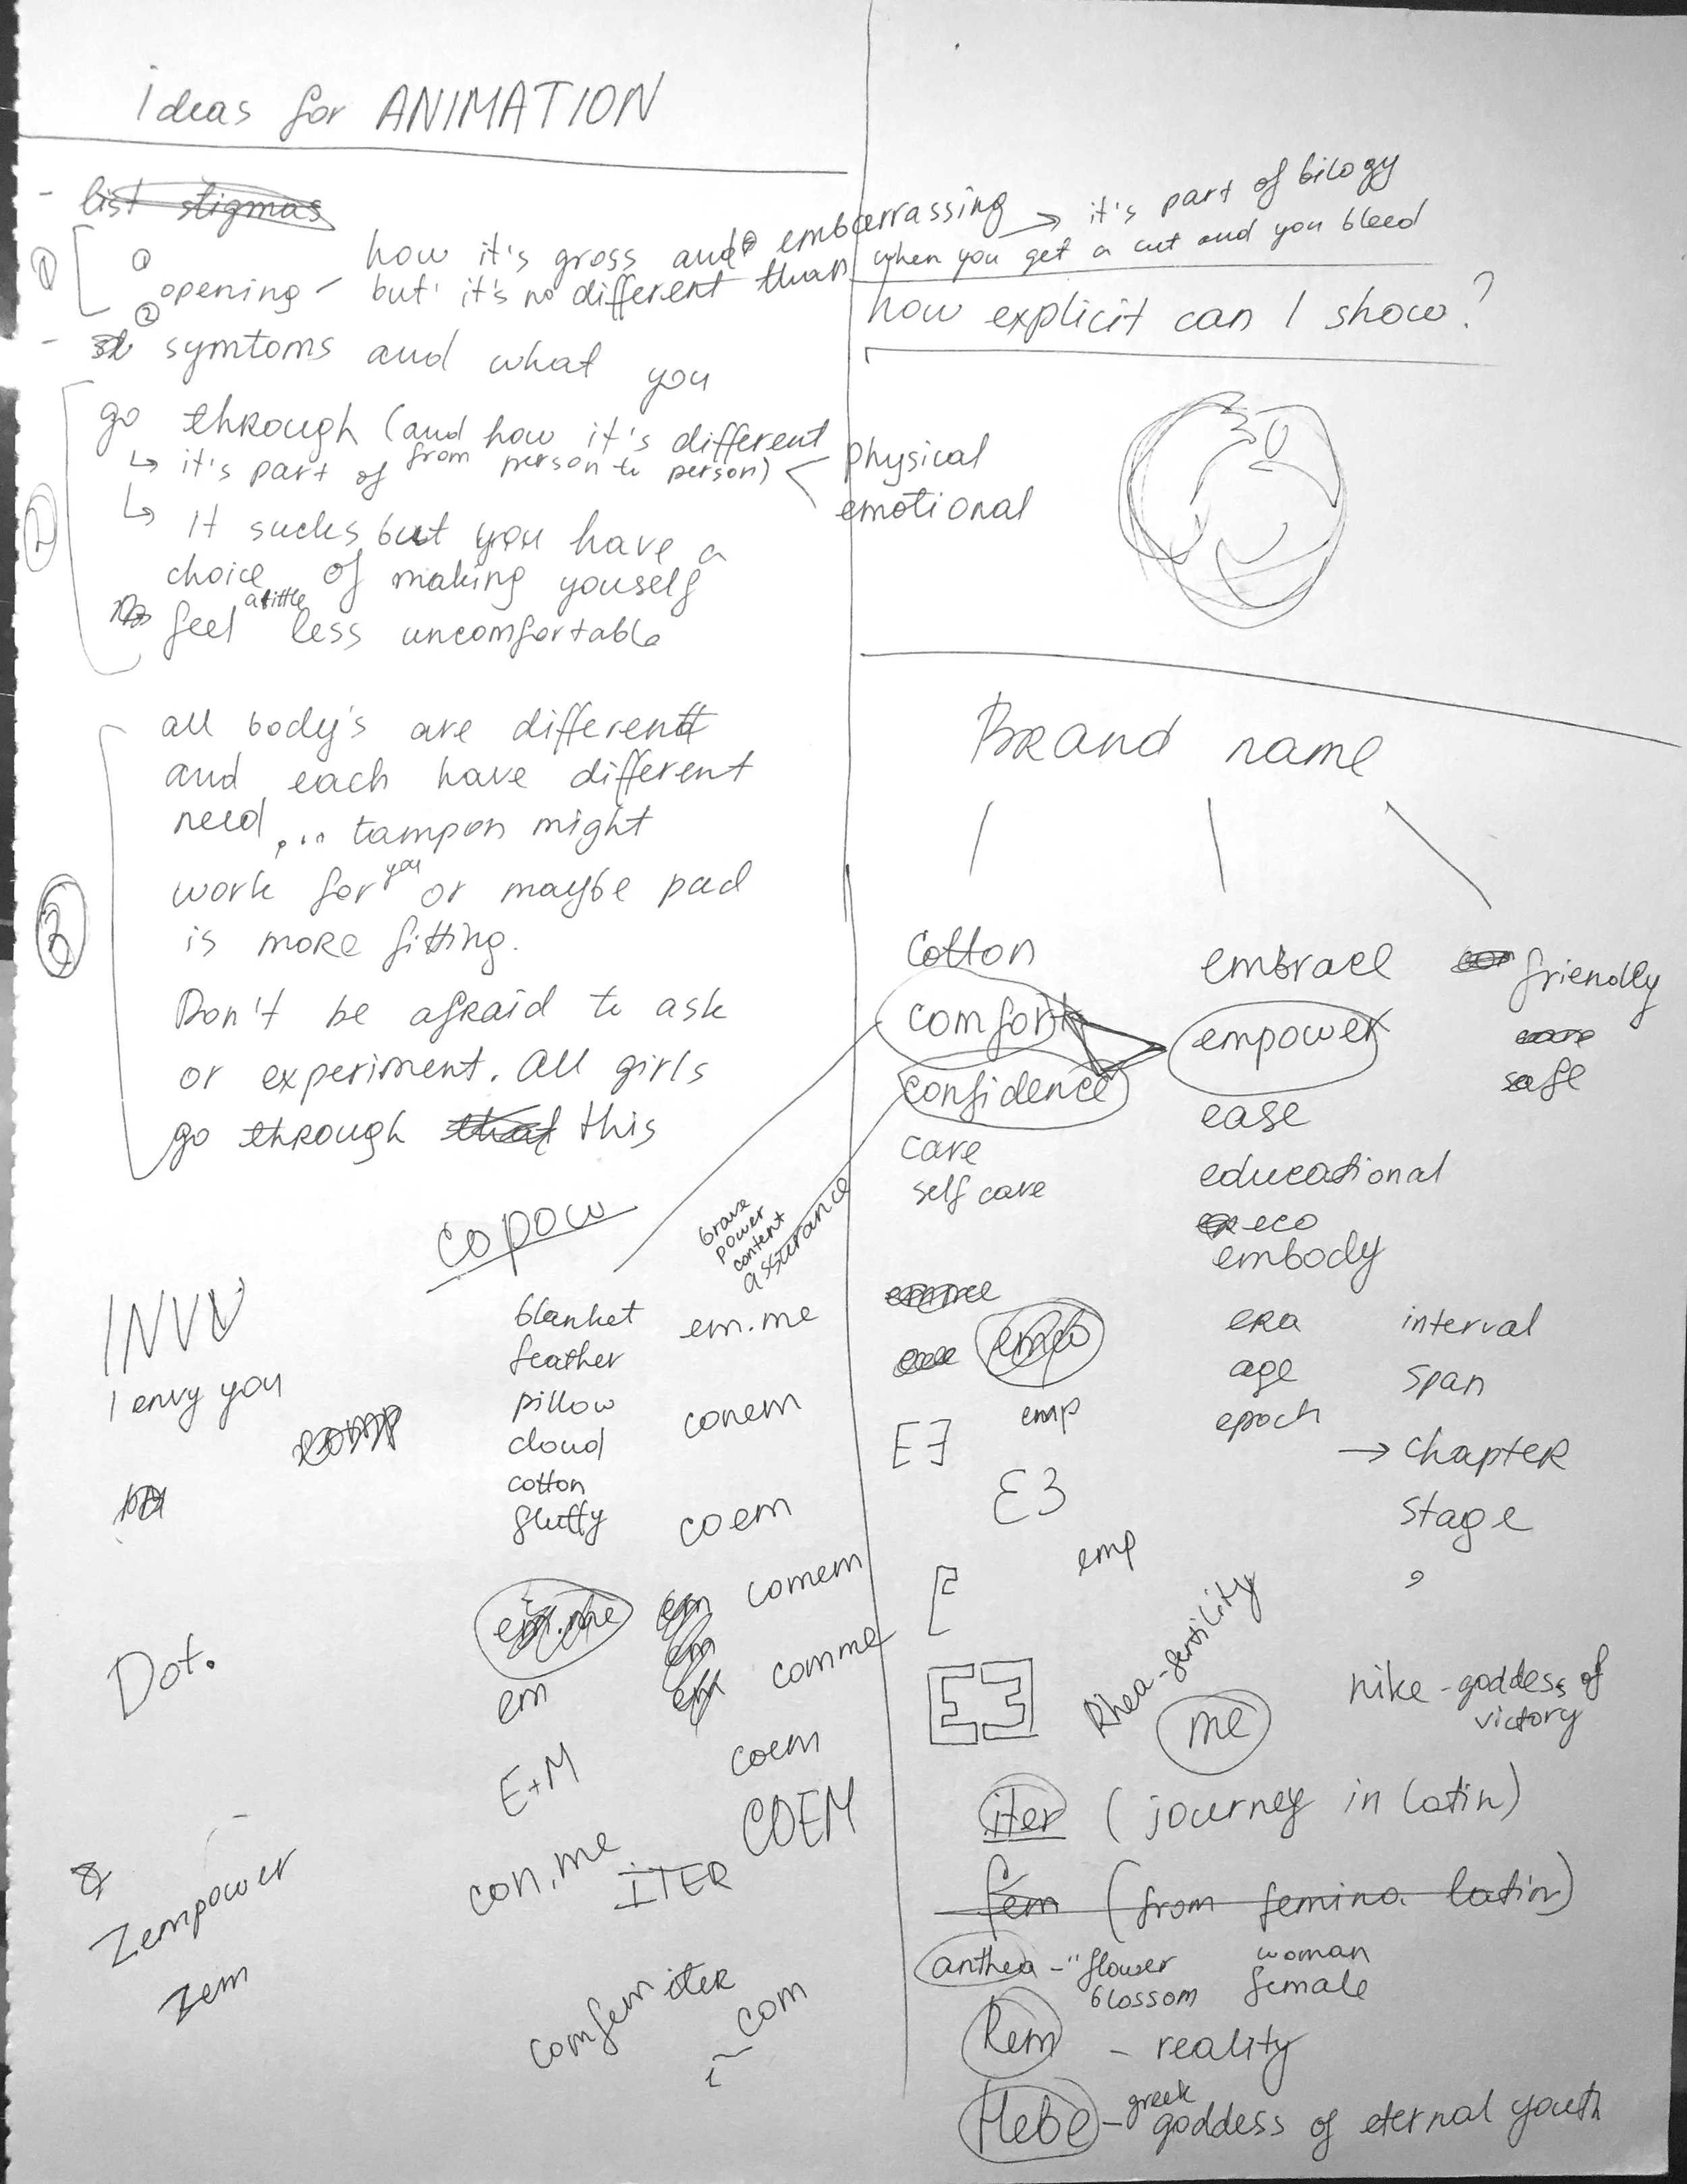 ideas for ANIMATION
- list stigmas
① ① how it's gross and embarrassing → it's part of bilogy
opening - but it's no different than when you get a cut and you bleed
②
- symtoms and what you
② go through (and how it's different
from person to person)
↳ it's part of
physical
emotional
↳ It sucks but you have a
choice of making youself
feel a little less uncomfortable
③ all body's are different
and each have different
need ... tampon might
work for you or maybe pad
is more fitting.
Don't be afraid to ask
or experiment. All girls
go through that this
how explicit can I show?
Brand name
cotton
comfort
confidence
care
self care
embrace
empower
ease
educational
eco
embody
friendly
safe
era
age
epoch
interval
span
→ chapter
stage
copow
brave
power
content
assurance
INVU
I envy you
Dot.
&
Zempower
Zem
blanket
feather
pillow
cloud
cotton
fluffy
em.me
em
E+M
con.me
ITER
comfem iter
com
em.me
conem
coem
comem
comme
coem
COEM
emp
E3
E3
emp
E
E3
Rhea - fertility
me
nike - goddess of
victory
iter (journey in latin)
fem (from femina latin)
anthea - "flower
blossom
woman
female
Rem - reality
Hebe - greek goddess of eternal youth